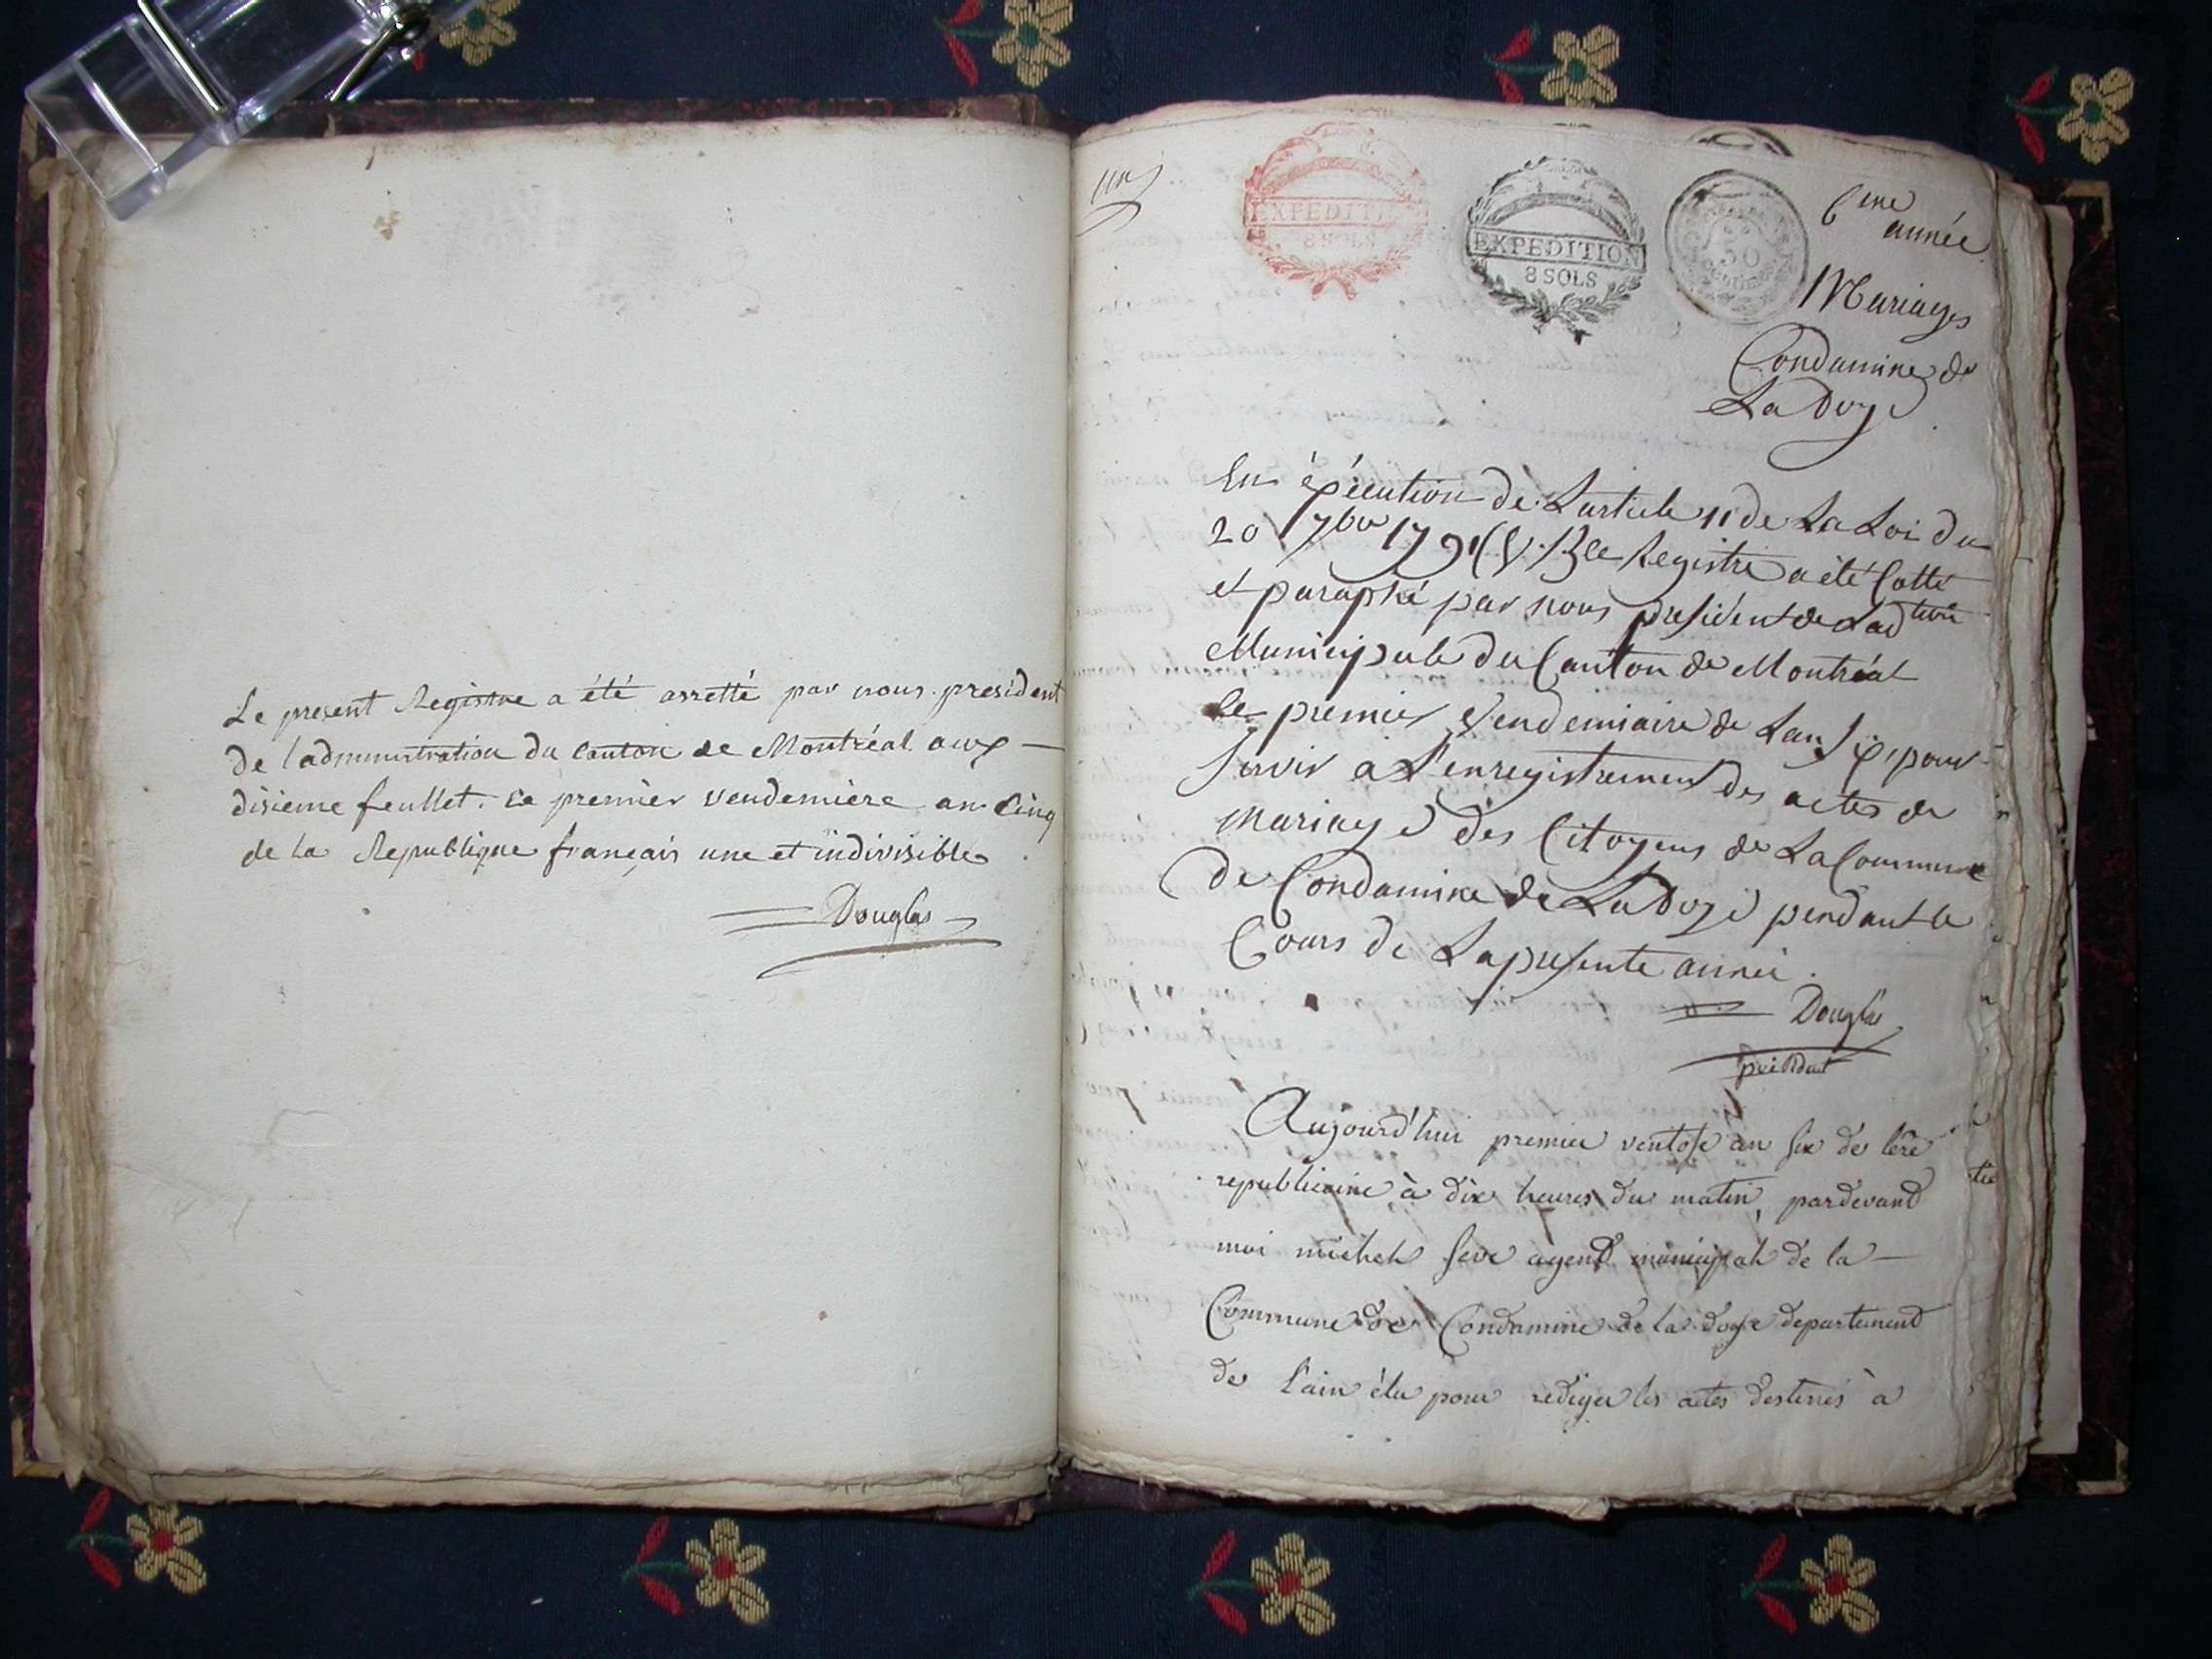 Le present Registre a été arretté par nous president
de l'administration du canton de Montréal aux
disieme feullet. le premier vendemiere an Cinq
de la Republique français une et indivisible
Douglas
un
EXPEDITION
8 SOLS
EXPEDITION
8 SOLS
50
6eme
année
Mariages
Condamine de
La Doye
En éxécution de L'article 11 de La Loi du
20 7bre 179 Ce Registre a été Cotté
et paraphé par nous president de L'adtion
Municipale du Canton de Montréal
le premier Vendemiaire de L'an six, pour
servir a L'enregistrement des actes de
mariage des Citoyens de La Commune
de Condamine de La Doye pendant le
Cours de La presente année.
Douglas
président
Aujourd'hui premier ventose an six de l'ère
republicaine à dix heures du matin, pardevant
moi michel seve agent municipal de la
Commune de Condamine de la doye departement
de L'ain élu pour rediger les actes destinés à